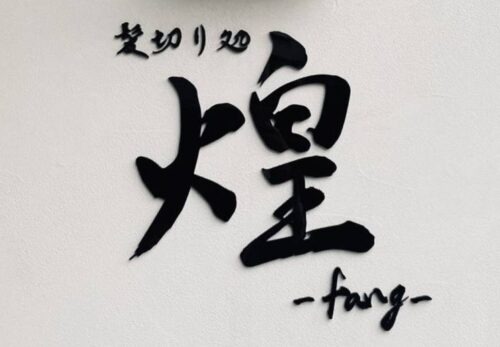 髪切り処
煌
-fang-